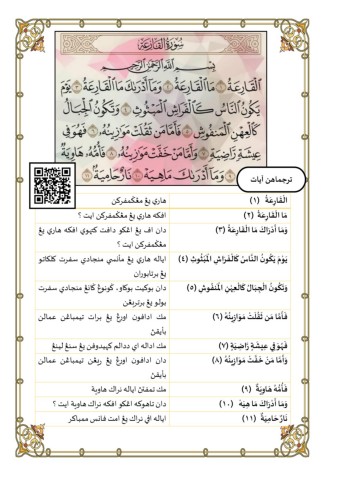 سُورَةُ القَارِعَةِ
بِسْمِ اللَّهِ الرَّحْمَٰنِ الرَّحِيمِ
الْقَارِعَةُ ١ مَا الْقَارِعَةُ ٢ وَمَا أَدْرَىٰكَ مَا الْقَارِعَةُ ٣ يَوْمَ
يَكُونُ النَّاسُ كَالْفَرَاشِ الْمَبْثُوثِ ٤ وَتَكُونُ الْجِبَالُ
كَالْعِهْنِ الْمَنفُوشِ ٥ فَأَمَّا مَن ثَقُلَتْ مَوَٰزِينُهُ ٦ فَهُوَ فِي
عِيشَةٍ رَّاضِيَةٍ ٧ وَأَمَّا مَنْ خَفَّتْ مَوَٰزِينُهُ ٨ فَأُمُّهُ هَاوِيَةٌ
٩ وَمَا أَدْرَىٰكَ مَا هِيَهْ ١٠ نَارٌ حَامِيَةٌ ١١
ترجماهن آيات
الْقَارِعَةُ (١) هاري يڠ مڠݢمڤرکن
مَا الْقَارِعَةُ (٢) اڤکه هاري يڠ مڠݢمڤرکن ايت ؟
وَمَا أَدْرَاكَ مَا الْقَارِعَةُ (٣) دان اڤ يڠ اڠکو داڤت کتهوي اڤکه هاري يڠ
مڠݢمڤرکن ايت ؟
يَوْمَ يَكُونُ النَّاسُ كَالْفَرَاشِ الْمَبْثُوثِ (٤) اياله هاري يڠ مأنسي منجادي سڤرت کلکاتو
يڠ برتابوران
وَتَكُونُ الْجِبَالُ كَالْعِهْنِ الْمَنفُوشِ (٥) دان بوکيت بوکاو، ݢونوڠ ݢانڠ منجادي سڤرت
بولو يڠ
فَأَمَّا مَن ثَقُلَتْ مَوَازِينُهُ (٦) مك اداڤون اورڠ يڠ برات تيمباڠن عمالن
بأيقڽ
فَهُوَ فِي عِيشَةٍ رَّاضِيَةٍ (٧) مك اداله اي ددالم کهيدوڤن يڠ سنڠ لينڠ
وَأَمَّا مَنْ خَفَّتْ مَوَازِينُهُ (٨) دان اداڤون اورڠ يڠ ريڠن تيمباڠن عمالن
بأيقڽ
فَأُمُّهُ هَاوِيَةٌ (٩) مك تمڤتڽ اياله نراك هاوية
وَمَا أَدْرَاكَ مَا هِيَهْ (١٠) دان تاهوکه اڠکو اڤکه نراك هاوية ايت ؟
نَارٌ حَامِيَةٌ (١١) اياله اڤي نراك يڠ امت ڤانس ممباکر